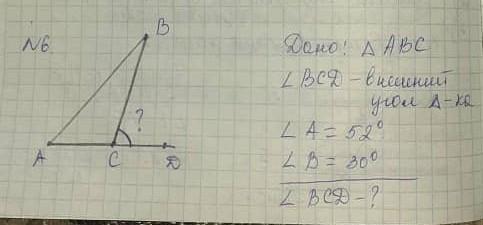 N6
B
?
A
C
D
Дано: △ ABC
∠ BCD - внешний
угол Δ-ка
∠ A = 52°
∠ B = 30°
∠ BCD - ?